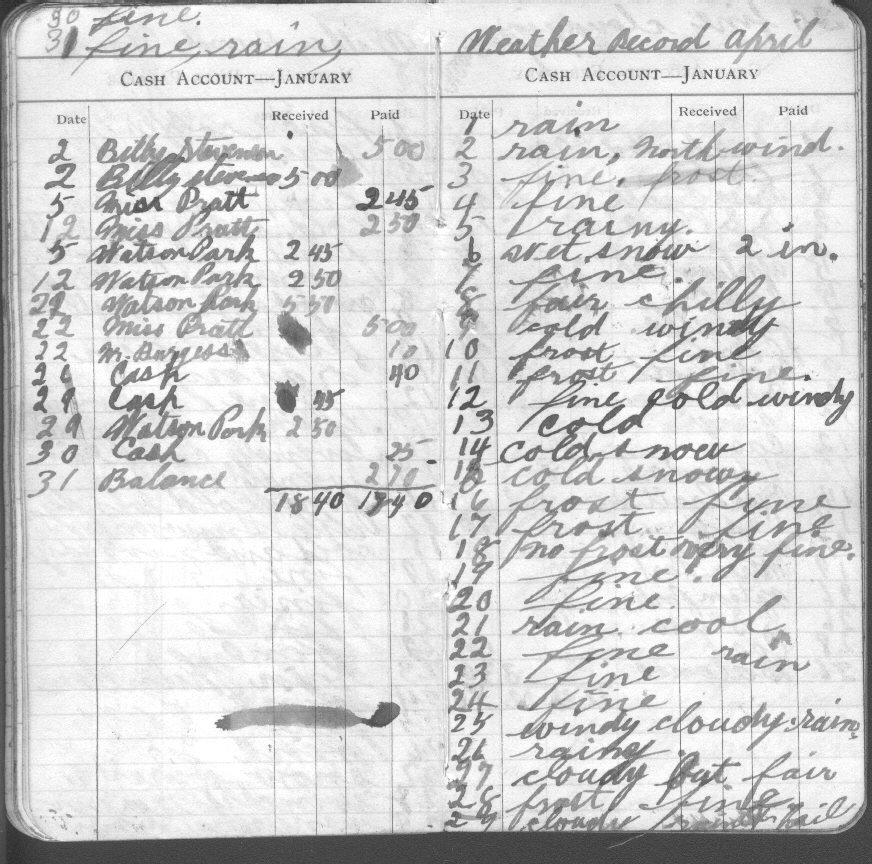 30 fine.
31 fine, rain,
CASH ACCOUNT—JANUARY
Date Received Paid
2 Billy Stevenson 5 00
2 Billy stevenson 5 00
5 Miss Pratt 2 45
12 Miss Pratt 2 50
5 Watson Park 2 45
12 Watson Park 2 50
22 Watson Park 5 50
22 Miss Pratt 5 00
22 M. Burgess 10
26 Cash 40
29 Cash 45
29 Watson Park 2 50
30 Cash 25
31 Balance 2 70
18 40 18 40
Weather Record April
CASH ACCOUNT—JANUARY
Date Received Paid
1 rain
2 rain, North wind.
3 fine. frost.
4 fine
5 rainy.
6 wet snow 2 in.
7 fine.
8 fair chilly
9 cold windy
10 frost fine
11 frost fine.
12 fine cold windy
13 cold
14 cold, snow
15 cold snowy
16 frost fyne
17 frost fine
18 no frost very fine.
19 fine.
20 fine.
21 rain cool
22 fine rain
23 fine
24 fine
25 windy cloudy rain,
26 rainy
27 cloudy but fair
28 frost fine
29 cloudy hail